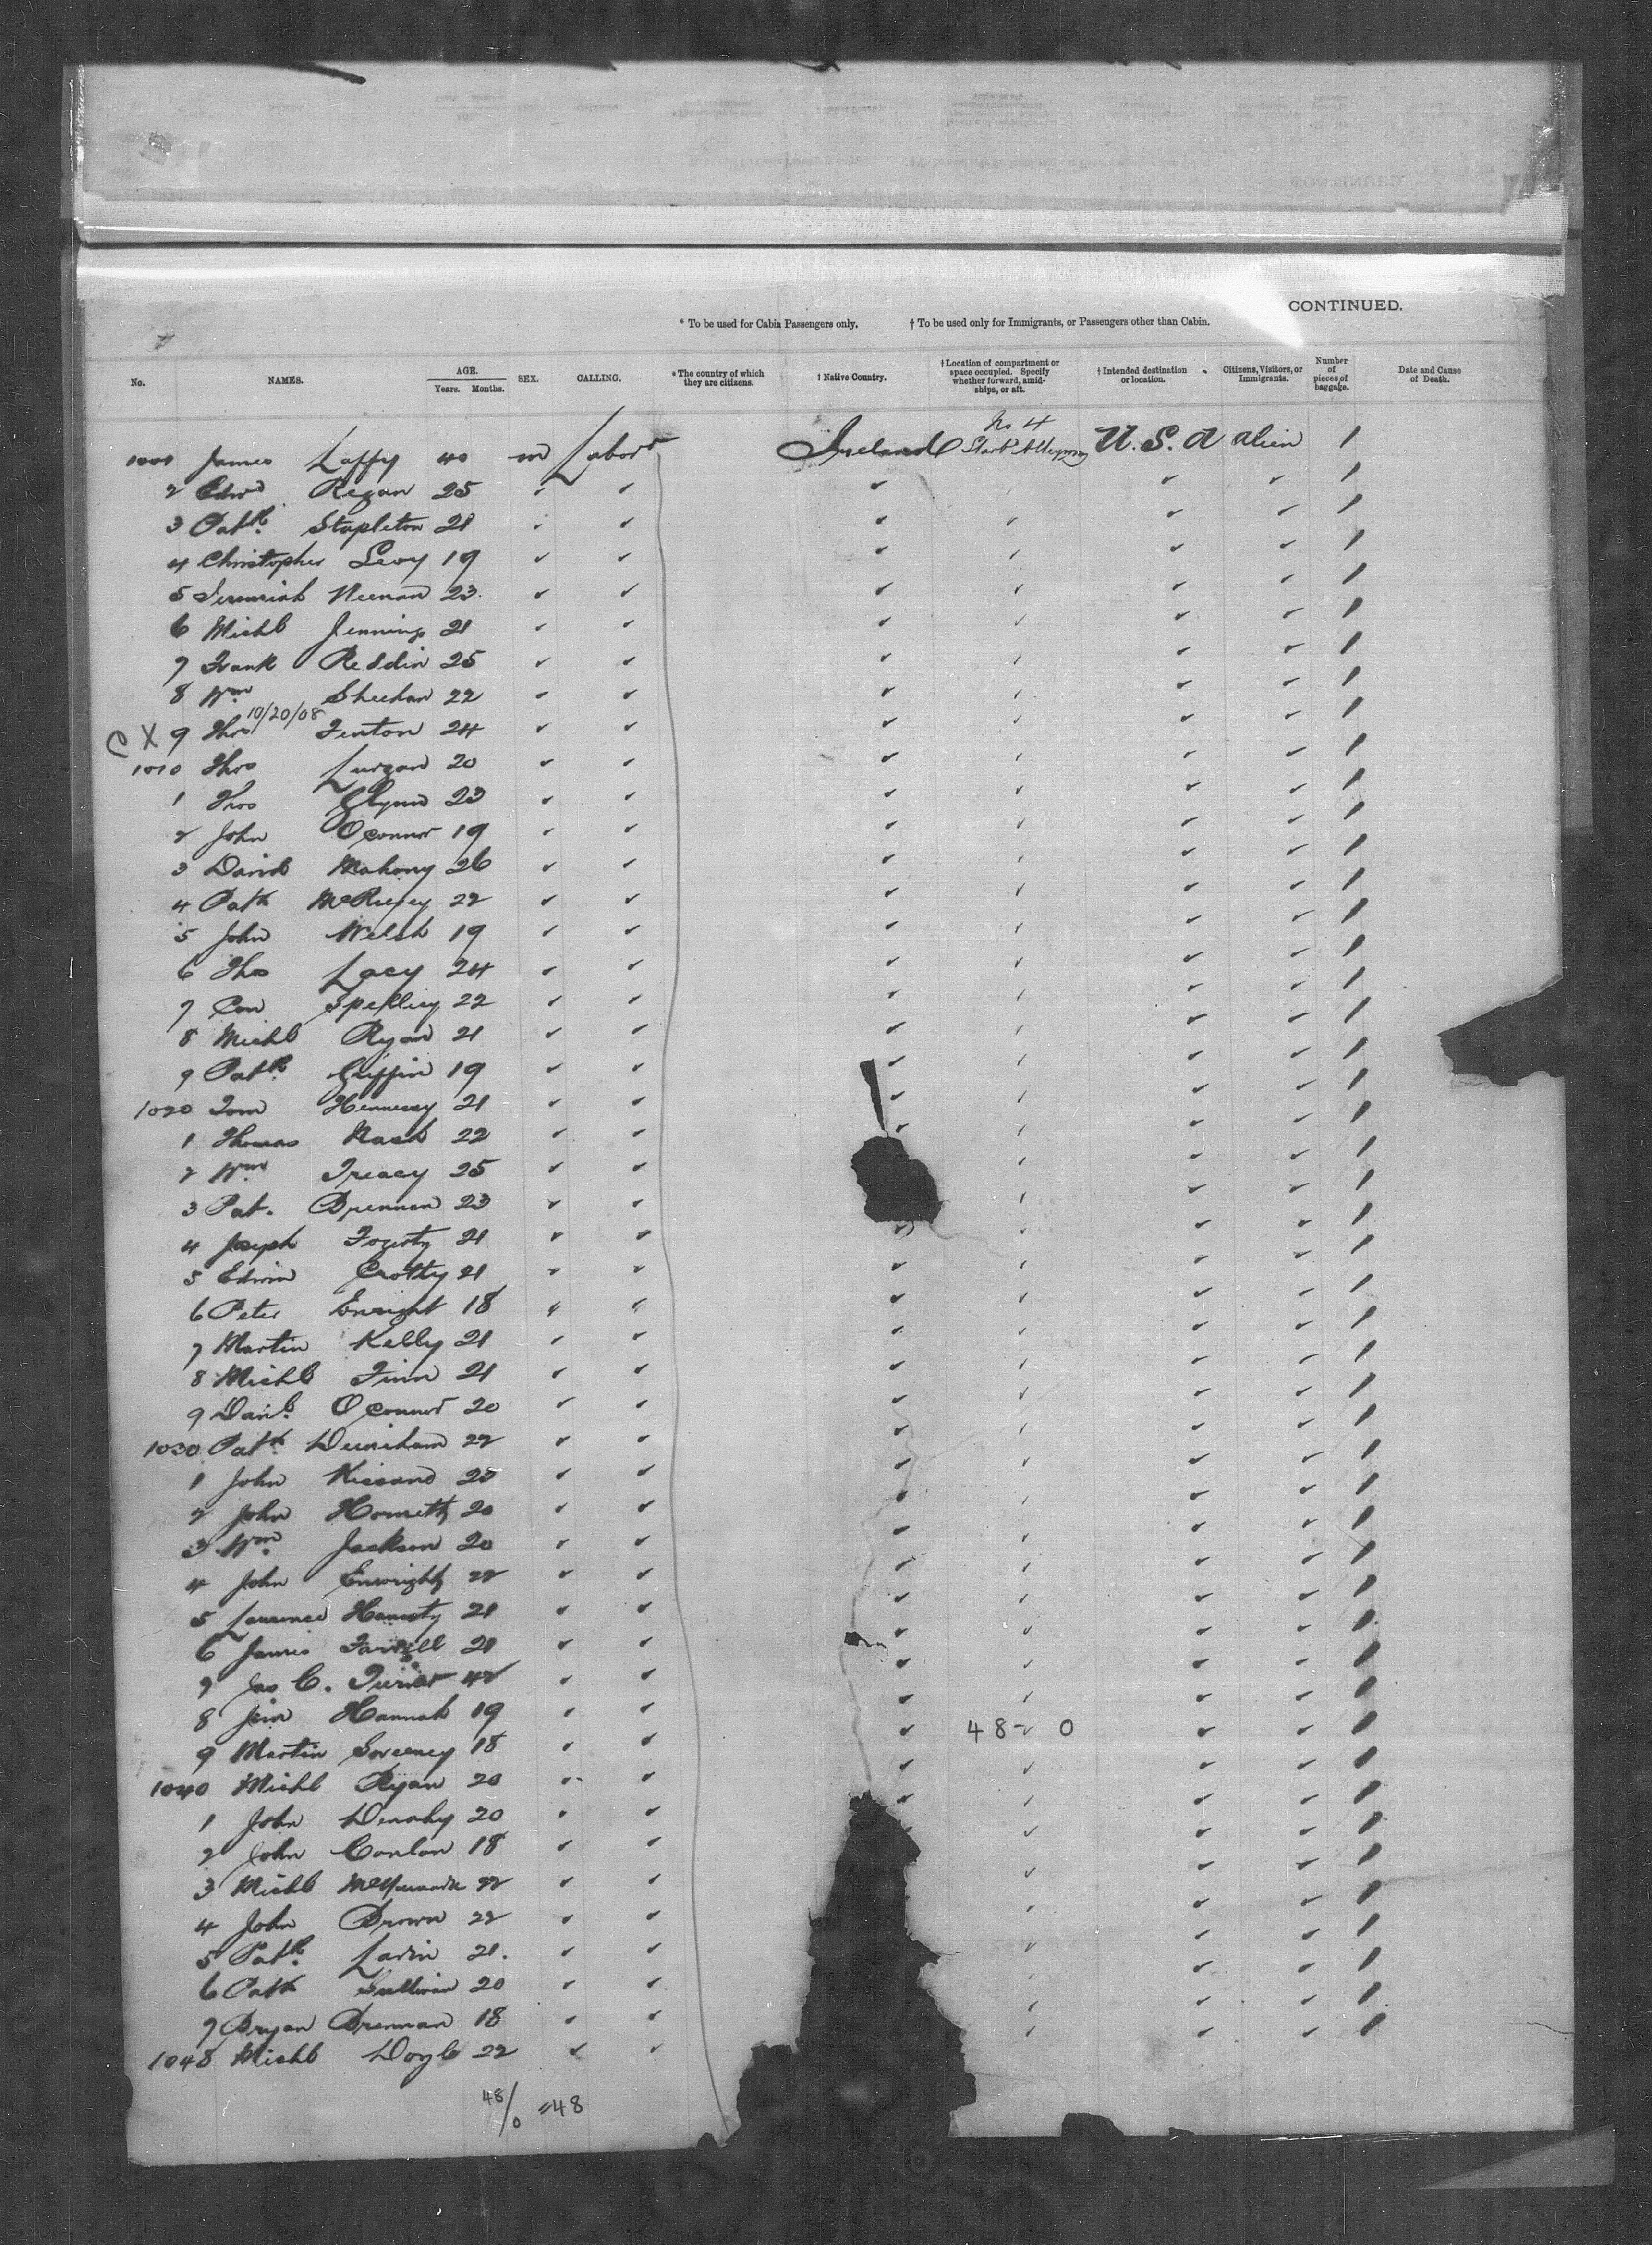 CONTINUED.
* To be used for Cabin Passengers only. † To be used only for Immigrants, or Passengers other than Cabin.
No. NAMES. AGE. Years. Months. SEX. CALLING. * The country of which they are citizens. † Native Country. † Location of compartment or space occupied. Specify whether forward, amidships, or aft. † Intended destination or location. Citizens, Visitors, or Immigrants. Number of pieces of baggage. Date and Cause of Death.
No 4
1001 James Laffy 40 m Labor Ireland U.S.A Alien 1
2 Edwd Regan 25 1
3 Patk. Stapleton 21 1
4 Christopher Levy 19 1
5 Jeremiah Neenan 23. 1
6 Michl Jennings 21 1
7 Frank Reddin 25 1
8 Wm Sheehan 22 1
10/20/08
C X 9 Thos Fenton 24 1
1010 Thos Lurgan 20 1
1 Thos Glynn 23 1
2 John O'Connor 19 1
3 David Mahony 26 1
4 Patk 22 1
5 John Welsh 19 1
6 Thos Lacy 24 1
7 Con 22 1
8 Michl Ryan 21 1
9 Patk. Griffin 19 1
1020 Tom Hennessy 21 1
1 Thomas Nash 22 1
2 Wm Treacy 25 1
3 Pat. Brennan 23 1
4 Joseph Fogerty 21 1
5 Edwin Crotty 21 1
6 Peter Enright 18 1
7 Martin Kelly 21 1
8 Michl Finn 21 1
9 Danl. O'Connor 20 1
1030 Patk. 22 1
1 John Kissane 20 1
2 John 20 1
3 Wm. Jackson 20 1
4 John 22 1
5 Laurence 21 1
6 James Farrell 21 1
7 Jas C. 42 1
8 Jim Hannah 19 1
9 Martin Sweeney 18 1
48 - 0
1040 Michl Ryan 20 1
1 John Denahy 20 1
2 John Conlon 18 1
3 Michl 22 1
4 John Brown 22 1
5 Patk. 21. 1
6 Patk Sullivan 20 1
7 Bryan Brennan 18 1
1048 Michl Doyle 22 1
48/0 = 48